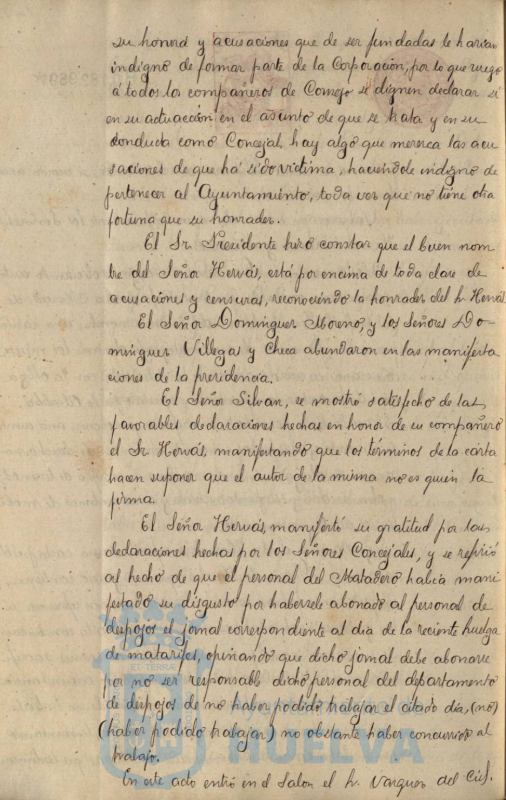 su honra y acusaciones que de ser fundadas le harian
indigno de formar parte de la Corporación, por lo que ruego
á todos los compañeros de Consejo se dignen declarar si
en su actuación en el asunto de que se trata y en su
conducta como Concejal, hay algo que merezca las acu
saciones de que há sido victima, haciendole indigno de
pertenecer al Ayuntamiento, toda vez que no tiene otra
fortuna que su honradez.
El Sr. Presidente hizo constar que el buen nom
bre del Señor Hervás, está por encima de toda clase de
acusaciones y censuras, reconociendo la honradez del Sr. Hervás
El Señor Dominguez Moreno, y los Señores Do-
minguez Villegas y Checa abundaron en las manifesta
ciones de la presidencia.
El Señor Silvan, se mostró satisfecho de las
favorables declaraciones hechas en honor de su compañero
el Sr. Hervás, manifestando que los términos de la carta
hacen suponer que el autor de la misma no es quien la
firma.
El Señor Hervás, manifestó su gratitud por las
declaraciones hechas por los Señores Concejales, y se refirió
al hecho de que el personal del Matadero habia mani
festado su disgusto por habersele abonado al personal de
despojos el jornal correspondiente al dia de la reciente huelga
de matarifes, opinando que dicho jornal debe abonarse
por no ser responsable dicho personal del departamento
de despojos de no haber podido trabajar el citado dia, (no)
(haber podido trabajar) no obstante haber concurrido al
trabajo.
En este acto entró en el salon el Sr. Vazquez del Cid.
HUELVA